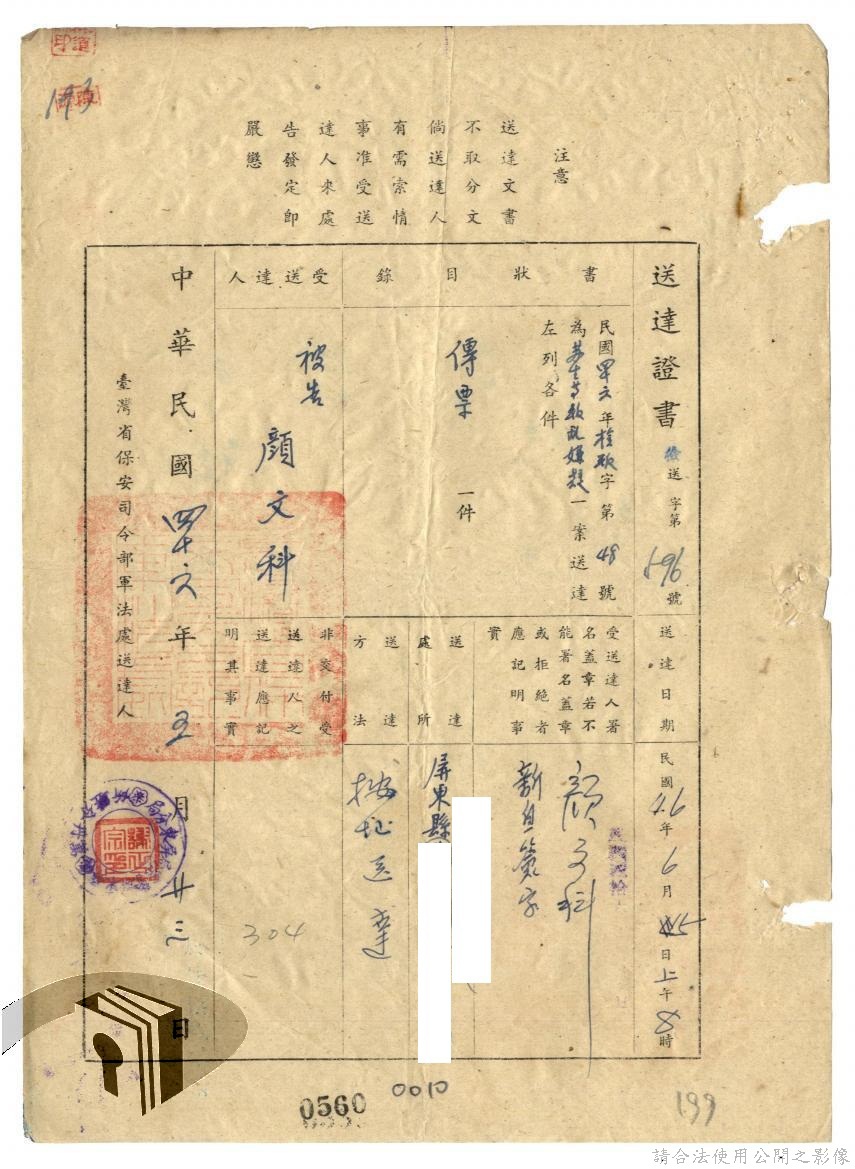 注意
送達文書
不取分文
倘送達人
有需索情
事准受送
達人來處
告發定即
嚴懲
送達證書
檢送字第596號
送達日期
民國46年6月5日上午8時
書狀目錄
民國四六年檢砍字第48號
左列各件
傳票 一件
受送達人署
名蓋章若不
能署名蓋章
或拒絕者
應記明事
實
顏文科
送達處所
屏東縣
送達方法
按址送達
受送達人
被告 顏文科
非交付受
送達人之
送達應記
明其事實
304
中華民國四十六年五月廿三日
臺灣省保安司令部軍法處送達人
0560
0010
199
請合法使用公開之影像